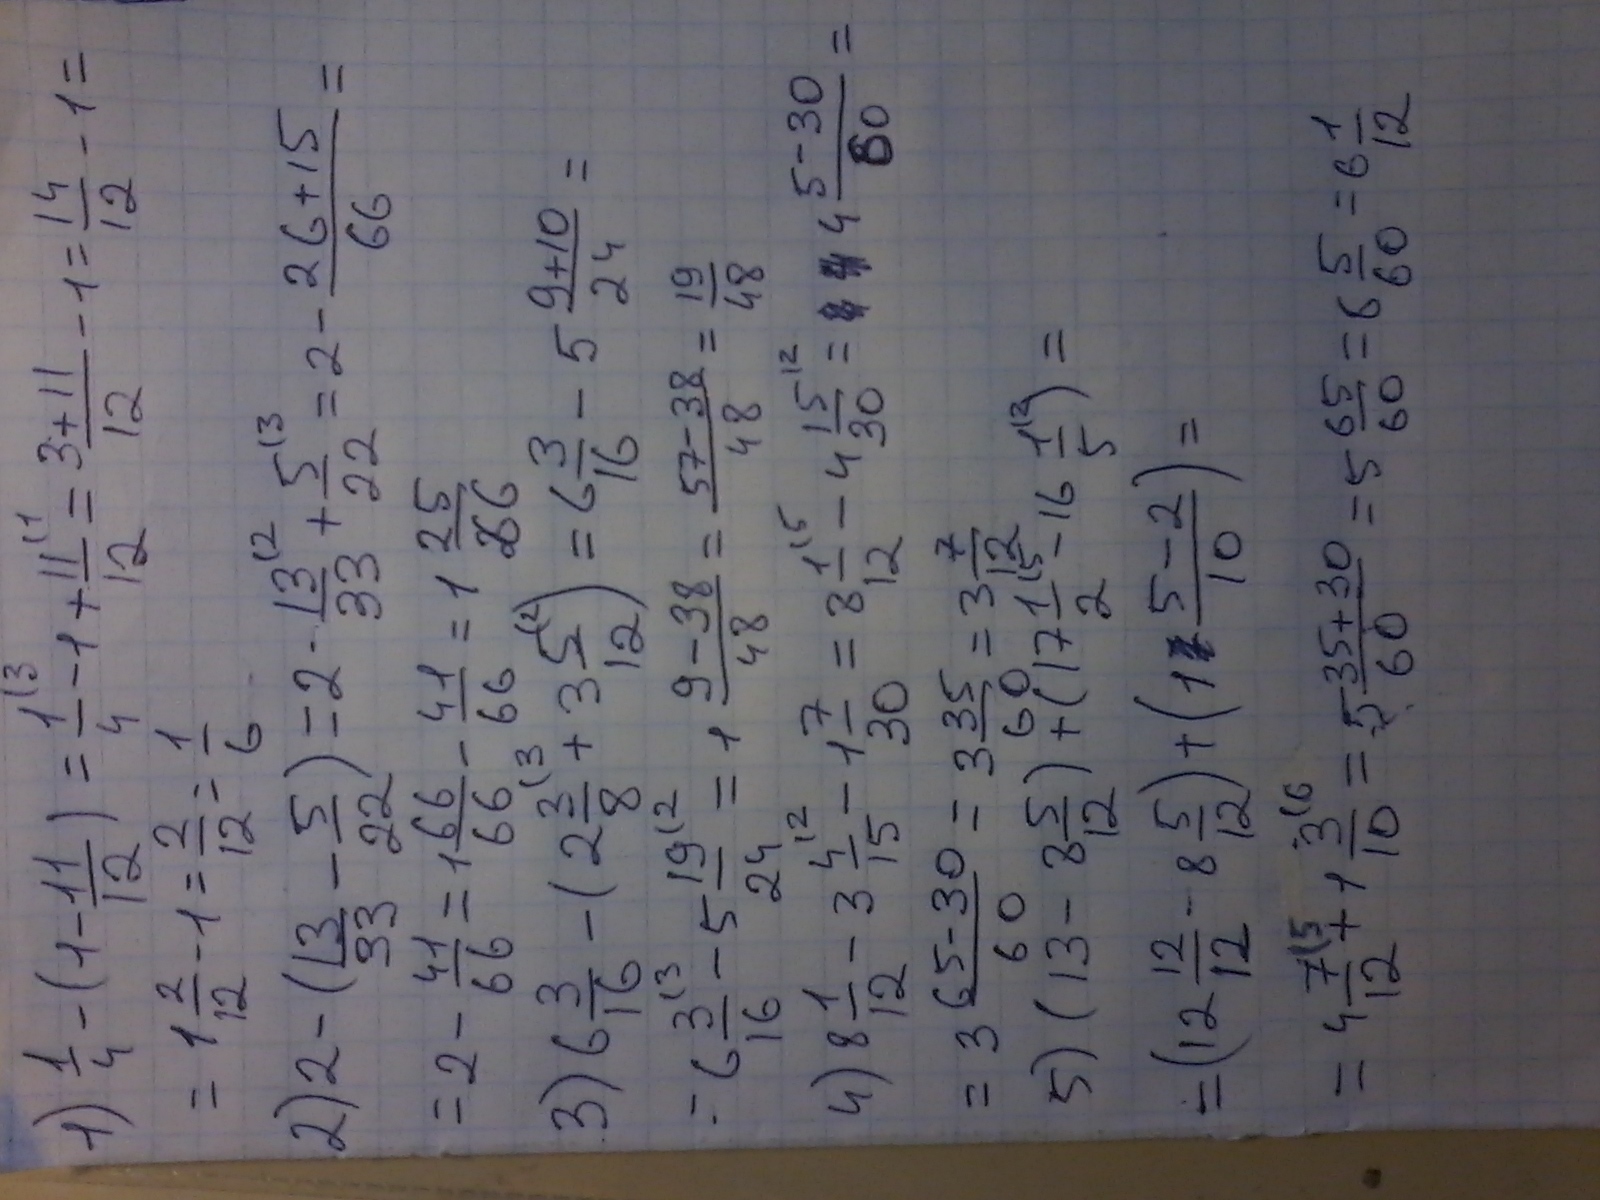 1) 1/4 - (1 - 11/12) = 1/4 (3 - 1 + 11/12 (1 = 3+11/12 - 1 = 14/12 - 1 =
= 1 2/12 - 1 = 2/12 = 1/6
2) 2 - (13/33 - 5/22) = 2 - 13/33 (2 + 5/22 (3 = 2 - 26+15/66 =
= 2 - 41/66 = 1 66/66 - 41/66 = 1 25/66
3) 6 3/16 - (2 3/8 (3 + 3 5/12 (2) = 6 3/16 - 5 9+10/24 =
= 6 3/16 (3 - 5 19/24 (2 = 1 9-38/48 = 57-38/48 = 19/48
4) 8 1/12 - 3 4/15 (2 - 1 7/30 = 8 1/12 (5 - 4 15/30 (2 = 4 5-30/60 =
= 3 65-30/60 = 3 35/60 = 3 7/12
5) (13 - 8 5/12) + (17 1/2 (5 - 16 1/5 (2) =
= (12 12/12 - 8 5/12) + (1 5-2/10) =
= 4 7/12 (5 + 1 3/10 (6 = 5 35+30/60 = 5 65/60 = 6 5/60 = 6 1/12